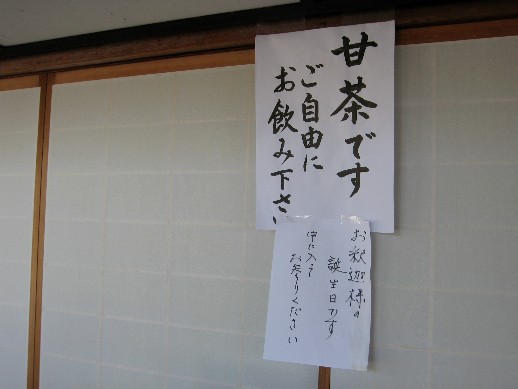 甘茶です
ご自由に
お飲み下さい
お釈迦様の
誕生日です
中に入って
お参りください